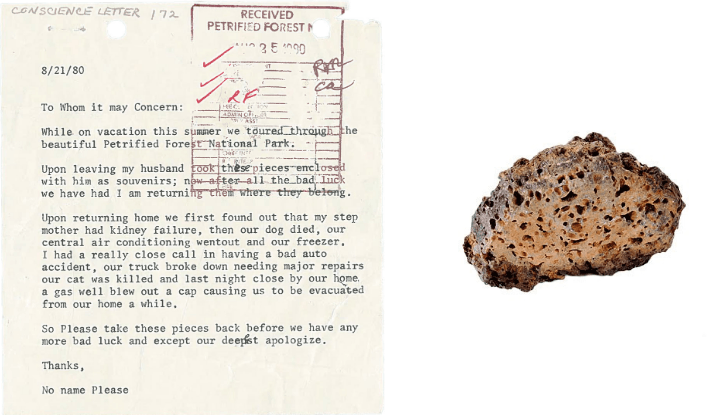 CONSCIENCE LETTER / 72
RECEIVED
PETRIFIED FOREST N
1980
RF
8/21/80
To Whom it may Concern:
While on vacation this summer we toured through the
beautiful Petrified Forest National Park.
Upon leaving my husband took these pieces enclosed
with him as souvenirs; now after all the bad luck
we have had I am returning them where they belong.
Upon returning home we first found out that my step
mother had kidney failure, then our dog died, our
central air conditioning wentout and our freezer.
I had a really close call in having a bad auto
accident, our truck broke down needing major repairs
our cat was killed and last night close by our home
a gas well blew out a cap causing us to be evacuated
from our home a while.
So Please take these pieces back before we have any
more bad luck and except our deepst apologize.
Thanks,
No name Please